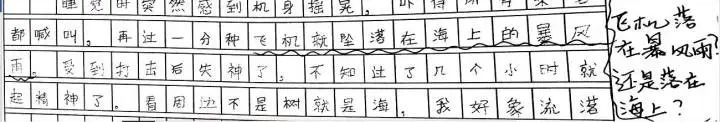 睡觉时突然感到机身摇晃，吓得所有
都喊叫。再过一分种飞机就坠落在海上的暴风
雨。受到打击后失神了，不知过了几个小时就
起精神了。看周边不是树就是海，我好象流落
飞机落
在暴风雨？
还是落在
海上？